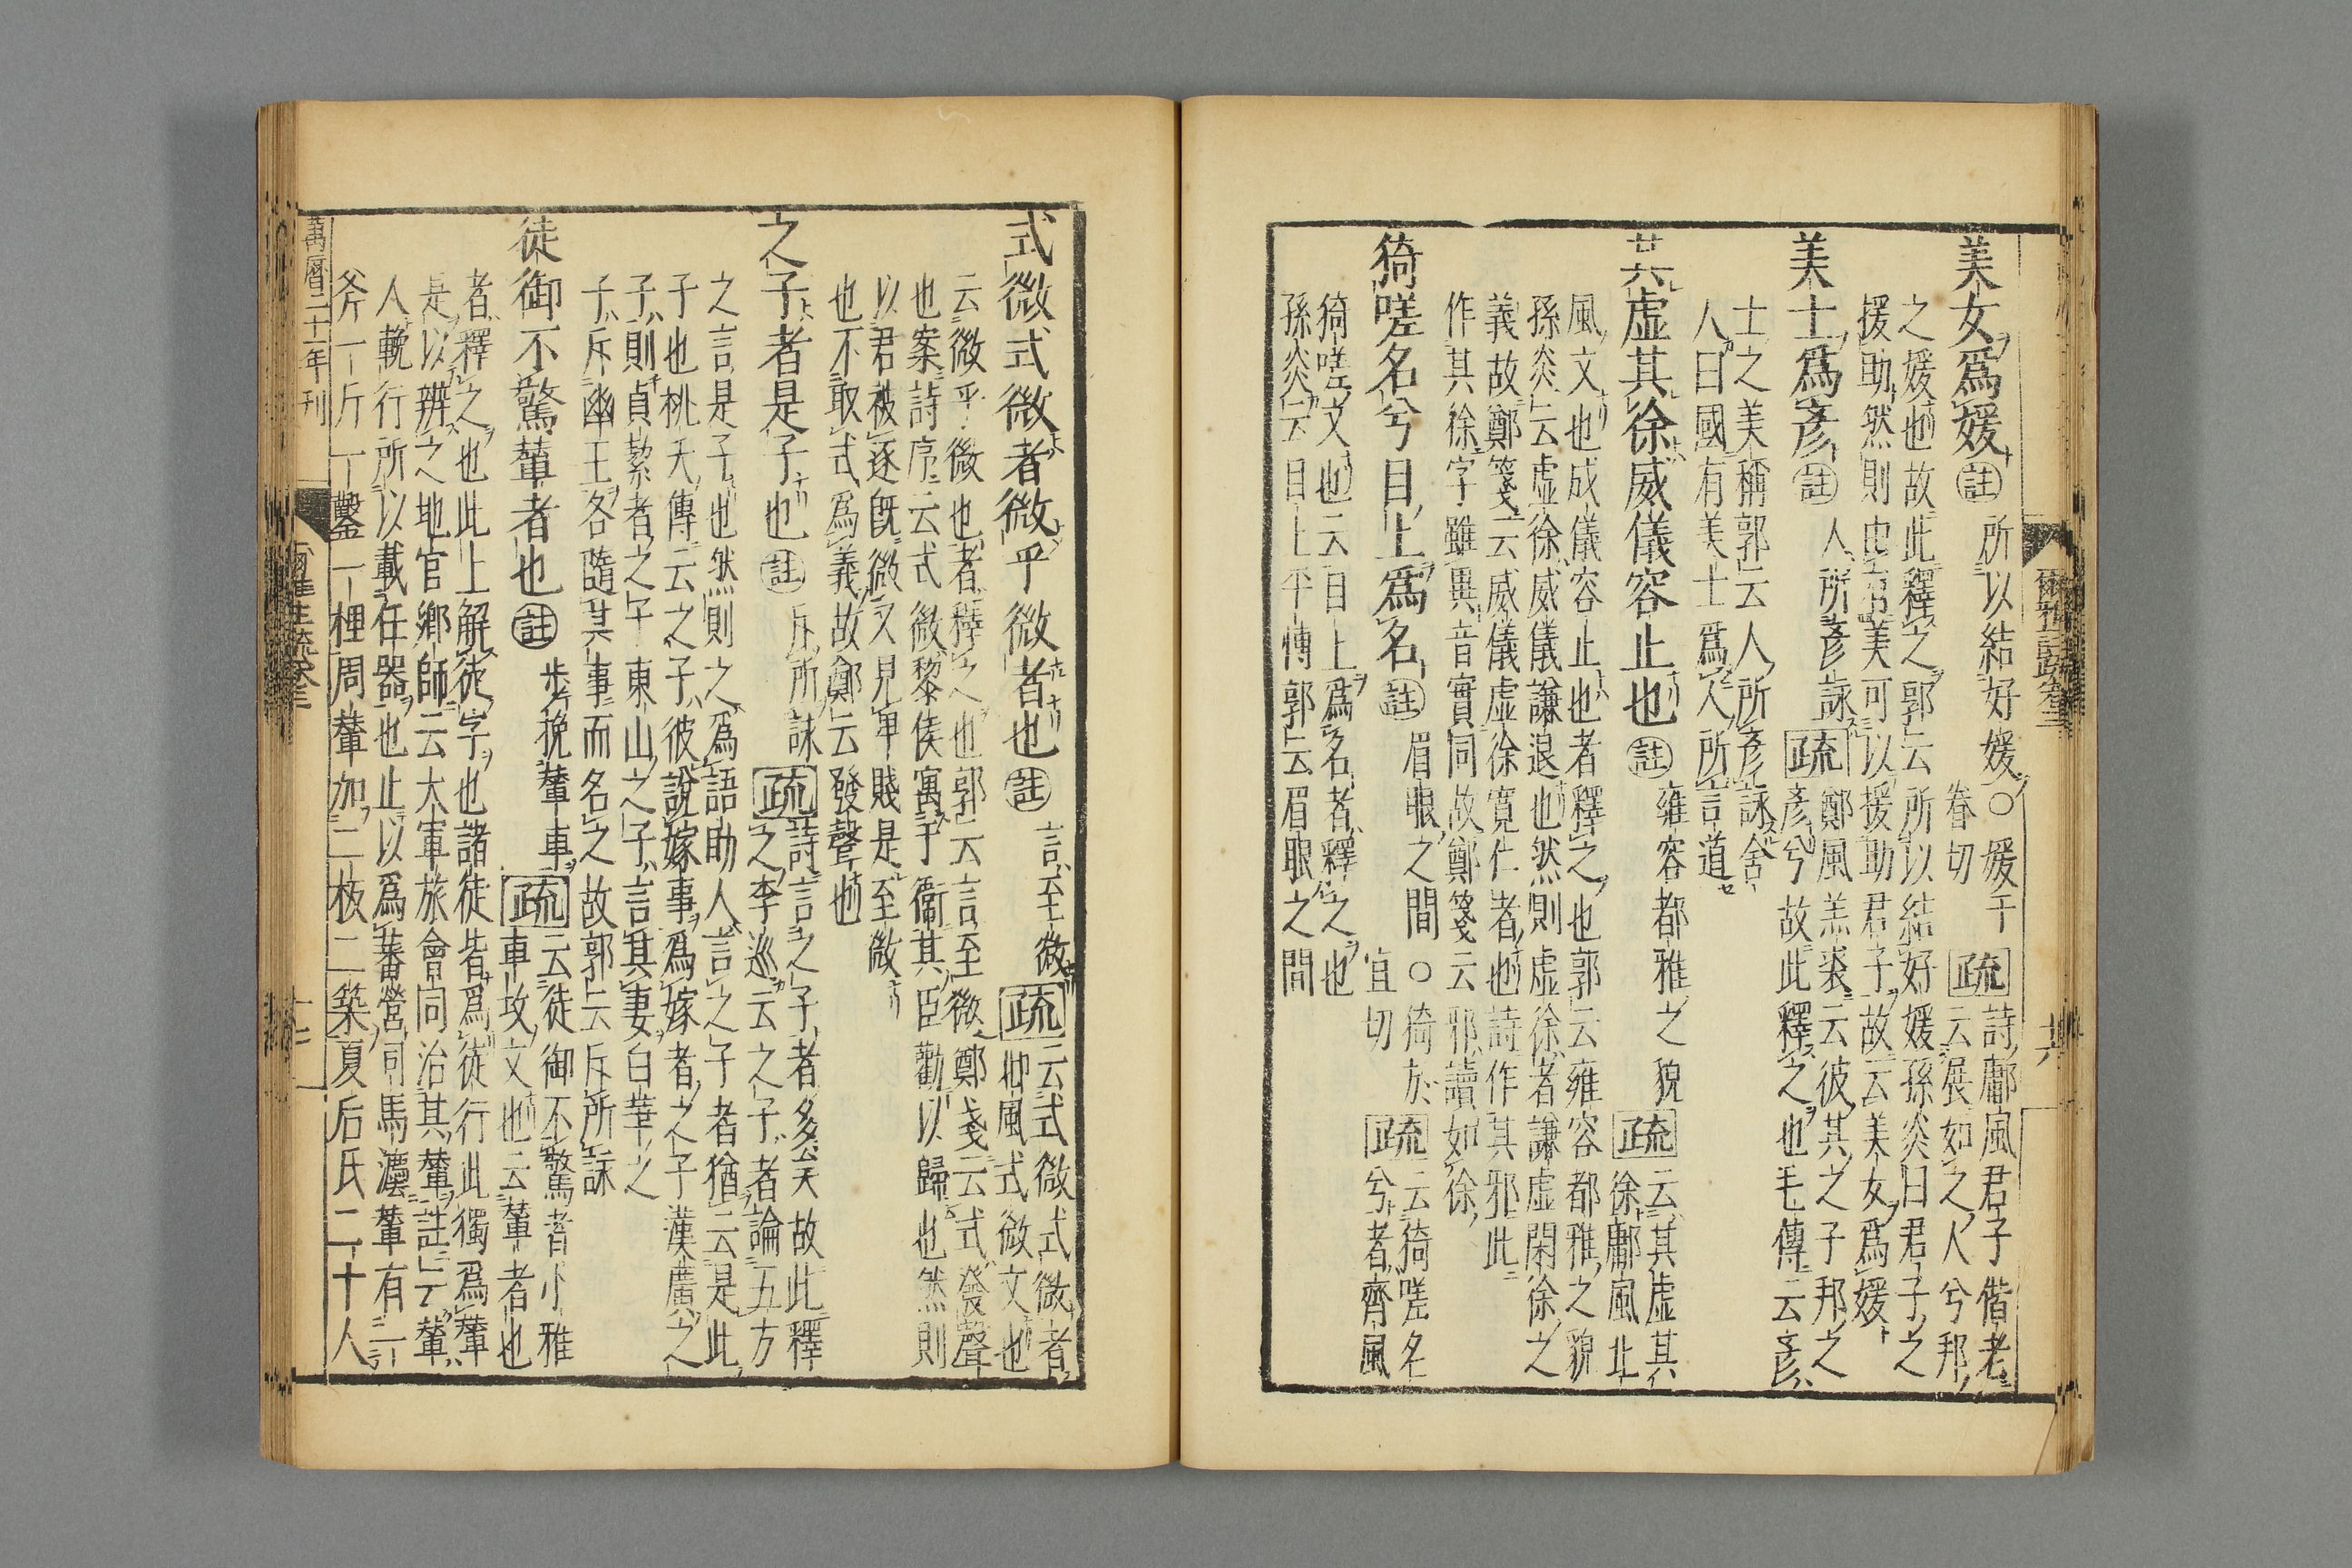 美女爲媛註所以結好媛○媛于眷切疏詩鄘風君子偕老云展如之人兮邦
之媛也故此釋之郭云所以結好媛孫炎曰君子之
援助然則由官美可以援助君子故云美女爲媛
美士爲彥註人所彥詠疏鄭風羔裘云彼其之子邦之彥兮故此釋之也毛傳云彥
士之美稱郭云人所彥詠舍
人曰國有美士爲人所言道
其虛其徐威儀容止也註雍容都雅之貌疏云其虛其徐鄘風北
風文也威儀容止也者釋之也郭云雍容都雅之貌
孫炎云虛徐威儀謙退也然則虛徐者謙虛閑徐之
義故鄭箋云威儀虛徐寬仁者也詩作其邪此
作其徐字雖異音實同故鄭箋云邪讀如徐
猗嗟名兮目上爲名註眉眼之間○猗於宜切疏云猗嗟名兮者齊風
猗嗟文也云目上爲名者釋之也
孫炎云目上平博郭云眉眼之間
爾雅註疏卷三
十六
式微式微者微乎微者也註言至微疏云式微式微者邶風式微文也
云微乎微也者釋之也郭云言至微鄭箋云式發聲
也案詩序云式微黎侯寓于衞其臣勸以歸也然則
以君被逐既微又見卑賤是至微
也不取式爲義故鄭云發聲也
之子者是子也註斥所詠疏詩言之子者多矣故此釋之李巡云之子者論五方
之言是子也然則之爲語助人言之子者猶云是此
子也桃夭傳云之子彼說嫁事爲嫁者之子漢廣之
子則貞絜者之子東山之子言其妻白華之
子斥幽王各隨其事而名之故郭云斥所詠
徒御不驚輦者也註步挽輦車疏云徒御不驚者小雅車攻文也云輦者也
者釋之也此上解徒字也諸徒皆爲徒行此獨爲輦
是以辨之地官鄉師云大軍旅會同治其輦註云輦
人輓行所以載任器也止以爲蕃營司馬灋輦有一
斧一斤一鑿一梩周輦加二板二築夏后氏二十人
爾雅註疏卷三
十七
萬曆二十一年刊